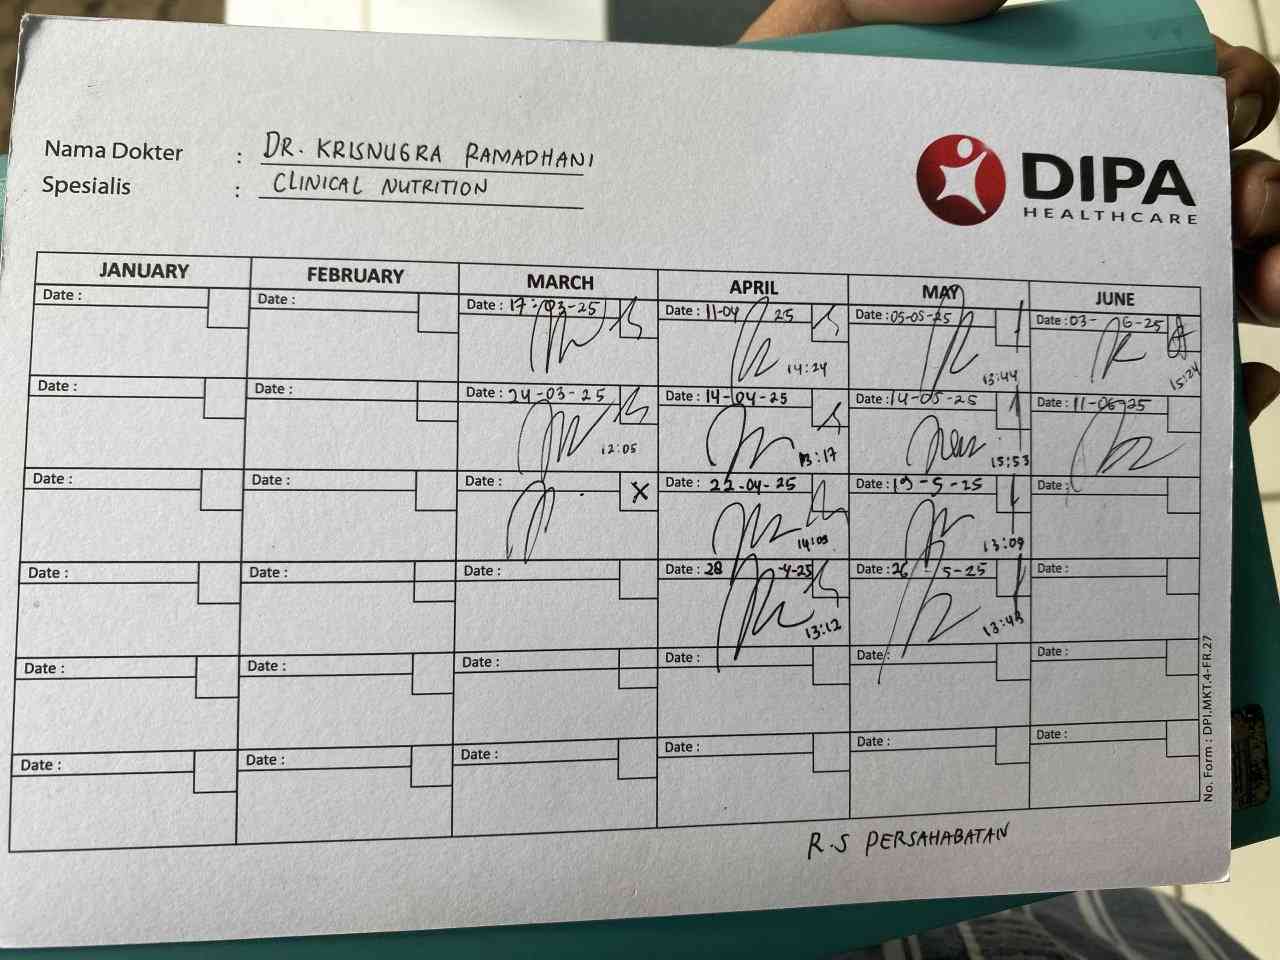 Nama Dokter : DR. KRISNUGRA RAMADHANI
Spesialis : CLINICAL NUTRITION
DIPA
HEALTHCARE
JANUARY FEBRUARY MARCH APRIL MAY JUNE
Date : Date : Date : 17-03-25 Date : 11-04 25 Date : 05-05-25 Date : 03- 6-25
14:24 13:44 15:24
Date : Date : Date : 24-03-25 Date : 14-04-25 Date : 14-05-25 Date : 11-06-25
12:05 13:17 15:53
Date : Date : Date : X Date : 22-04-25 Date : 19-5-25 Date :
14:09 13:09
Date : Date : Date : Date : 28 -4-25 Date : 26 -5-25 Date :
13:12 13:43
Date : Date : Date : Date : Date : Date :
Date : Date : Date : Date : Date : Date :
No. Form : DPI.MKT.4-FR.27
R.S PERSAHABATAN